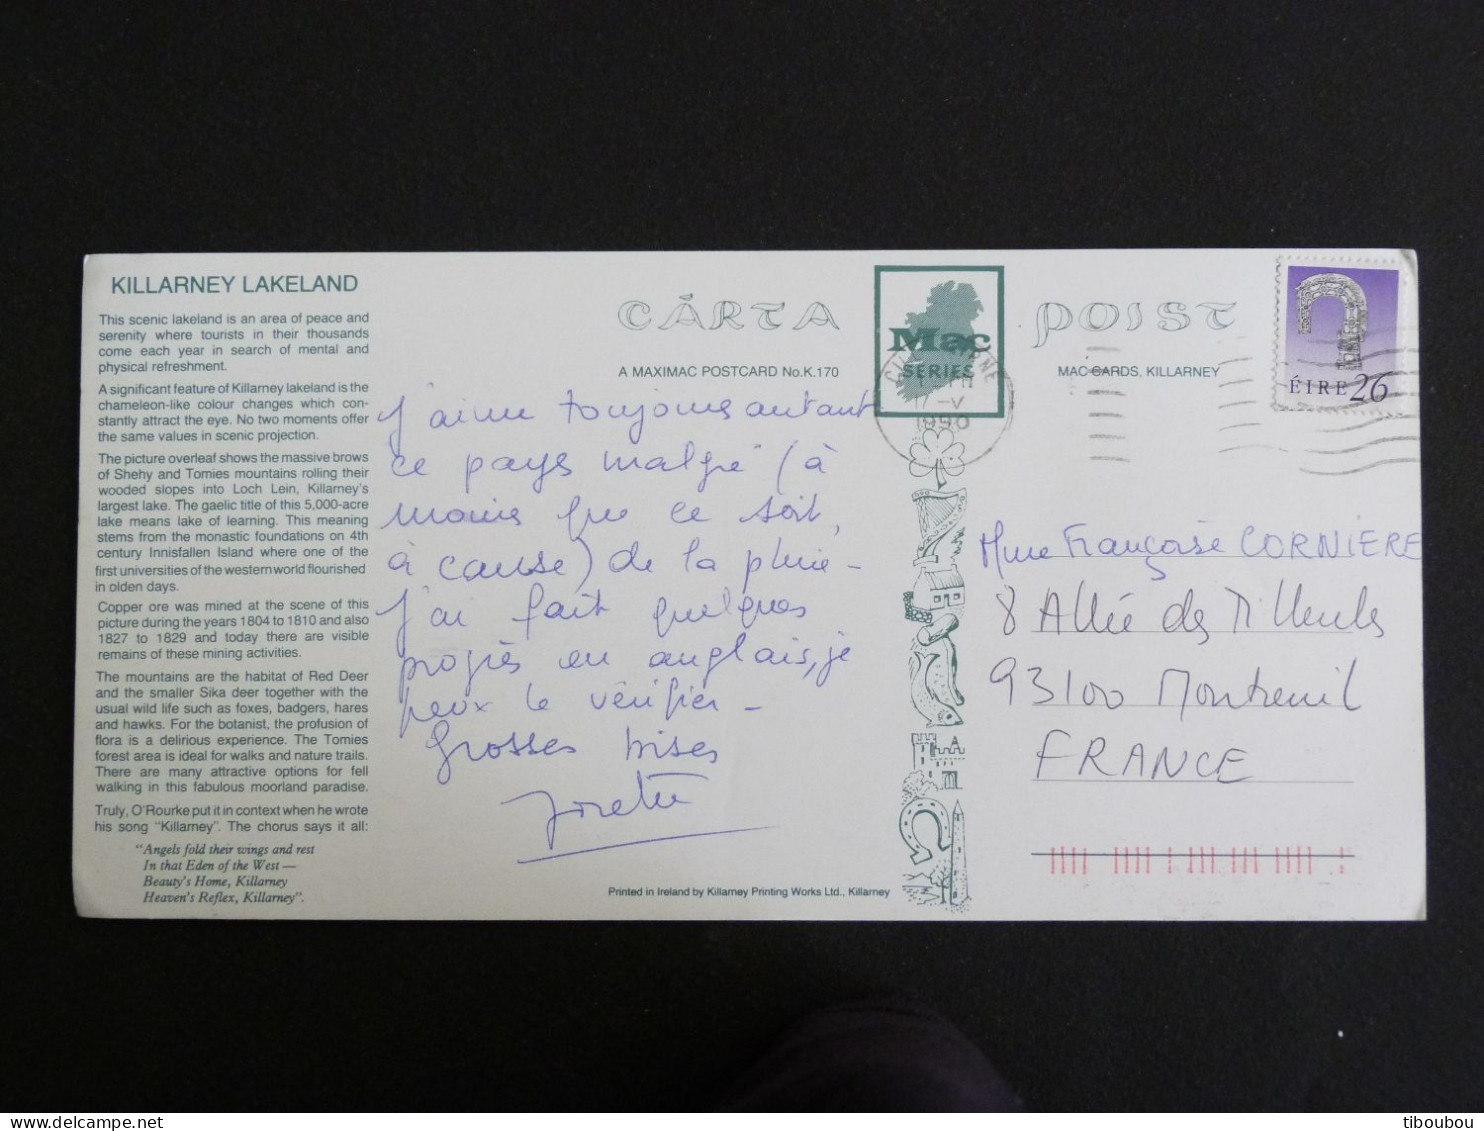 KILLARNEY LAKELAND
This scenic lakeland is an area of peace and
serenity where tourists in their thousands
come each year in search of mental and
physical refreshment.
A significant feature of Killarney lakeland is the
chameleon-like colour changes which con-
stantly attract the eye. No two moments offer
the same values in scenic projection.
The picture overleaf shows the massive brows
of Shehy and Tomies mountains rolling their
wooded slopes into Loch Lein, Killarney's
largest lake. The gaelic title of this 5,000-acre
lake means lake of learning. This meaning
stems from the monastic foundations on 4th
century Innisfallen Island where one of the
first universities of the western world flourished
in olden days.
Copper ore was mined at the scene of this
picture during the years 1804 to 1810 and also
1827 to 1829 and today there are visible
remains of these mining activities.
The mountains are the habitat of Red Deer
and the smaller Sika deer together with the
usual wild life such as foxes, badgers, hares
and hawks. For the botanist, the profusion of
flora is a delirious experience. The Tomies
forest area is ideal for walks and nature trails.
There are many attractive options for fell
walking in this fabulous moorland paradise.
Truly, O'Rourke put it in context when he wrote
his song "Killarney". The chorus says it all:
"Angels fold their wings and rest
In that Eden of the West —
Beauty's Home, Killarney
Heaven's Reflex, Killarney".
CÁRTA
POIST
Mac
SERIES
A MAXIMAC POSTCARD No.K.170
MAC CARDS, KILLARNEY
ÉIRE 26
J'aime toujours autant
ce pays malgré (à
moins que ce soit,
à cause) de la pluie -
J'ai fait quelques
progrès en anglais, je
peux le vérifier -
Grosses bises
Josette
Mme Françoise CORNIERE
8 Allée des Tilleuls
93100 Montreuil
FRANCE
Printed in Ireland by Killarney Printing Works Ltd., Killarney
tiboubou